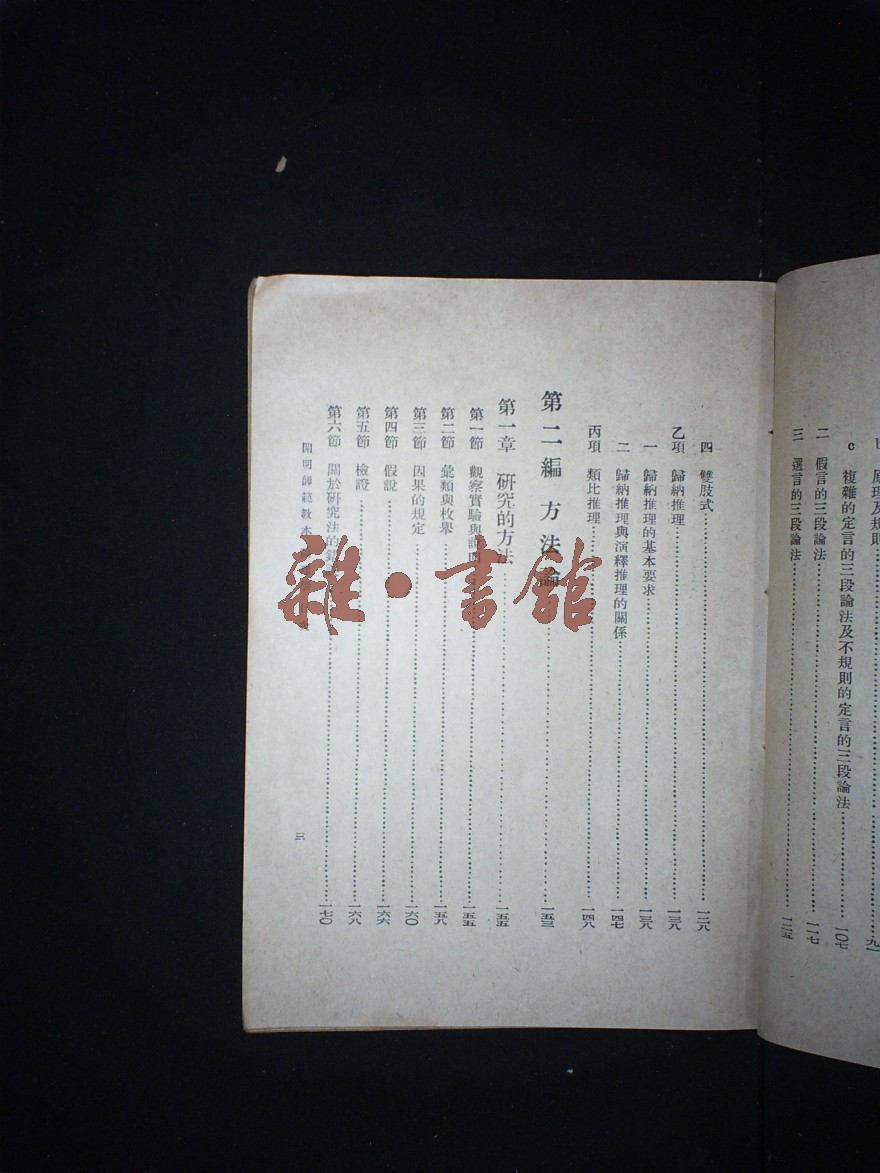 原理及規則……九一
c 複雜的定言的三段論法及不規則的定言的三段論法……一〇七
二 假言的三段論法……一一七
三 選言的三段論法……一二五
四 雙肢式……一二八
乙項 歸納推理……一三八
一 歸納推理的基本要求……一三八
二 歸納推理與演釋推理的關係……一四七
丙項 類比推理……一四八
第二編 方法論……一五三
第一章 研究的方法……一五五
第一節 觀察實驗與……一五五
第二節 彙類與枚舉……一五八
第三節 因果的規定……一六〇
第四節 假說……一六六
第五節 檢證……一六八
第六節 關於研究法的……一七〇
開明師範教本
三
雜·書館